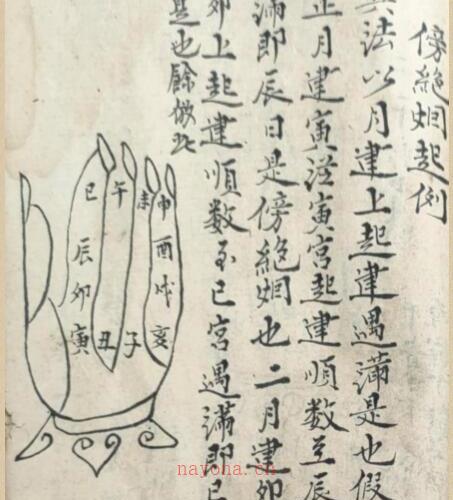 傍絶烟起例
其法以月建上起建遇滿是也假
正月建寅從寅宮起建順数至辰
滿即辰日是傍絶烟也二月建卯
卯上起建順数至巳宮遇滿即巳
是也餘倣此
巳 午 未 申
辰 酉
卯 戌
寅 丑 子 亥
nayoha.cn